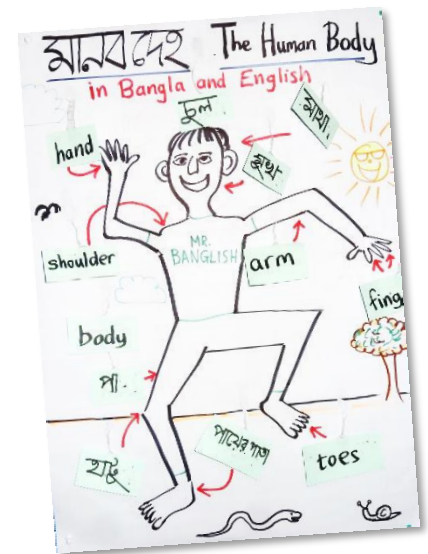 মানব দেহ The Human Body
in Bangla and English
চুল
মাথা.
hand
মুখ
shoulder
MR.
BANGLISH
arm
body
পা.
হাটু
পায়ের পাতা
toes